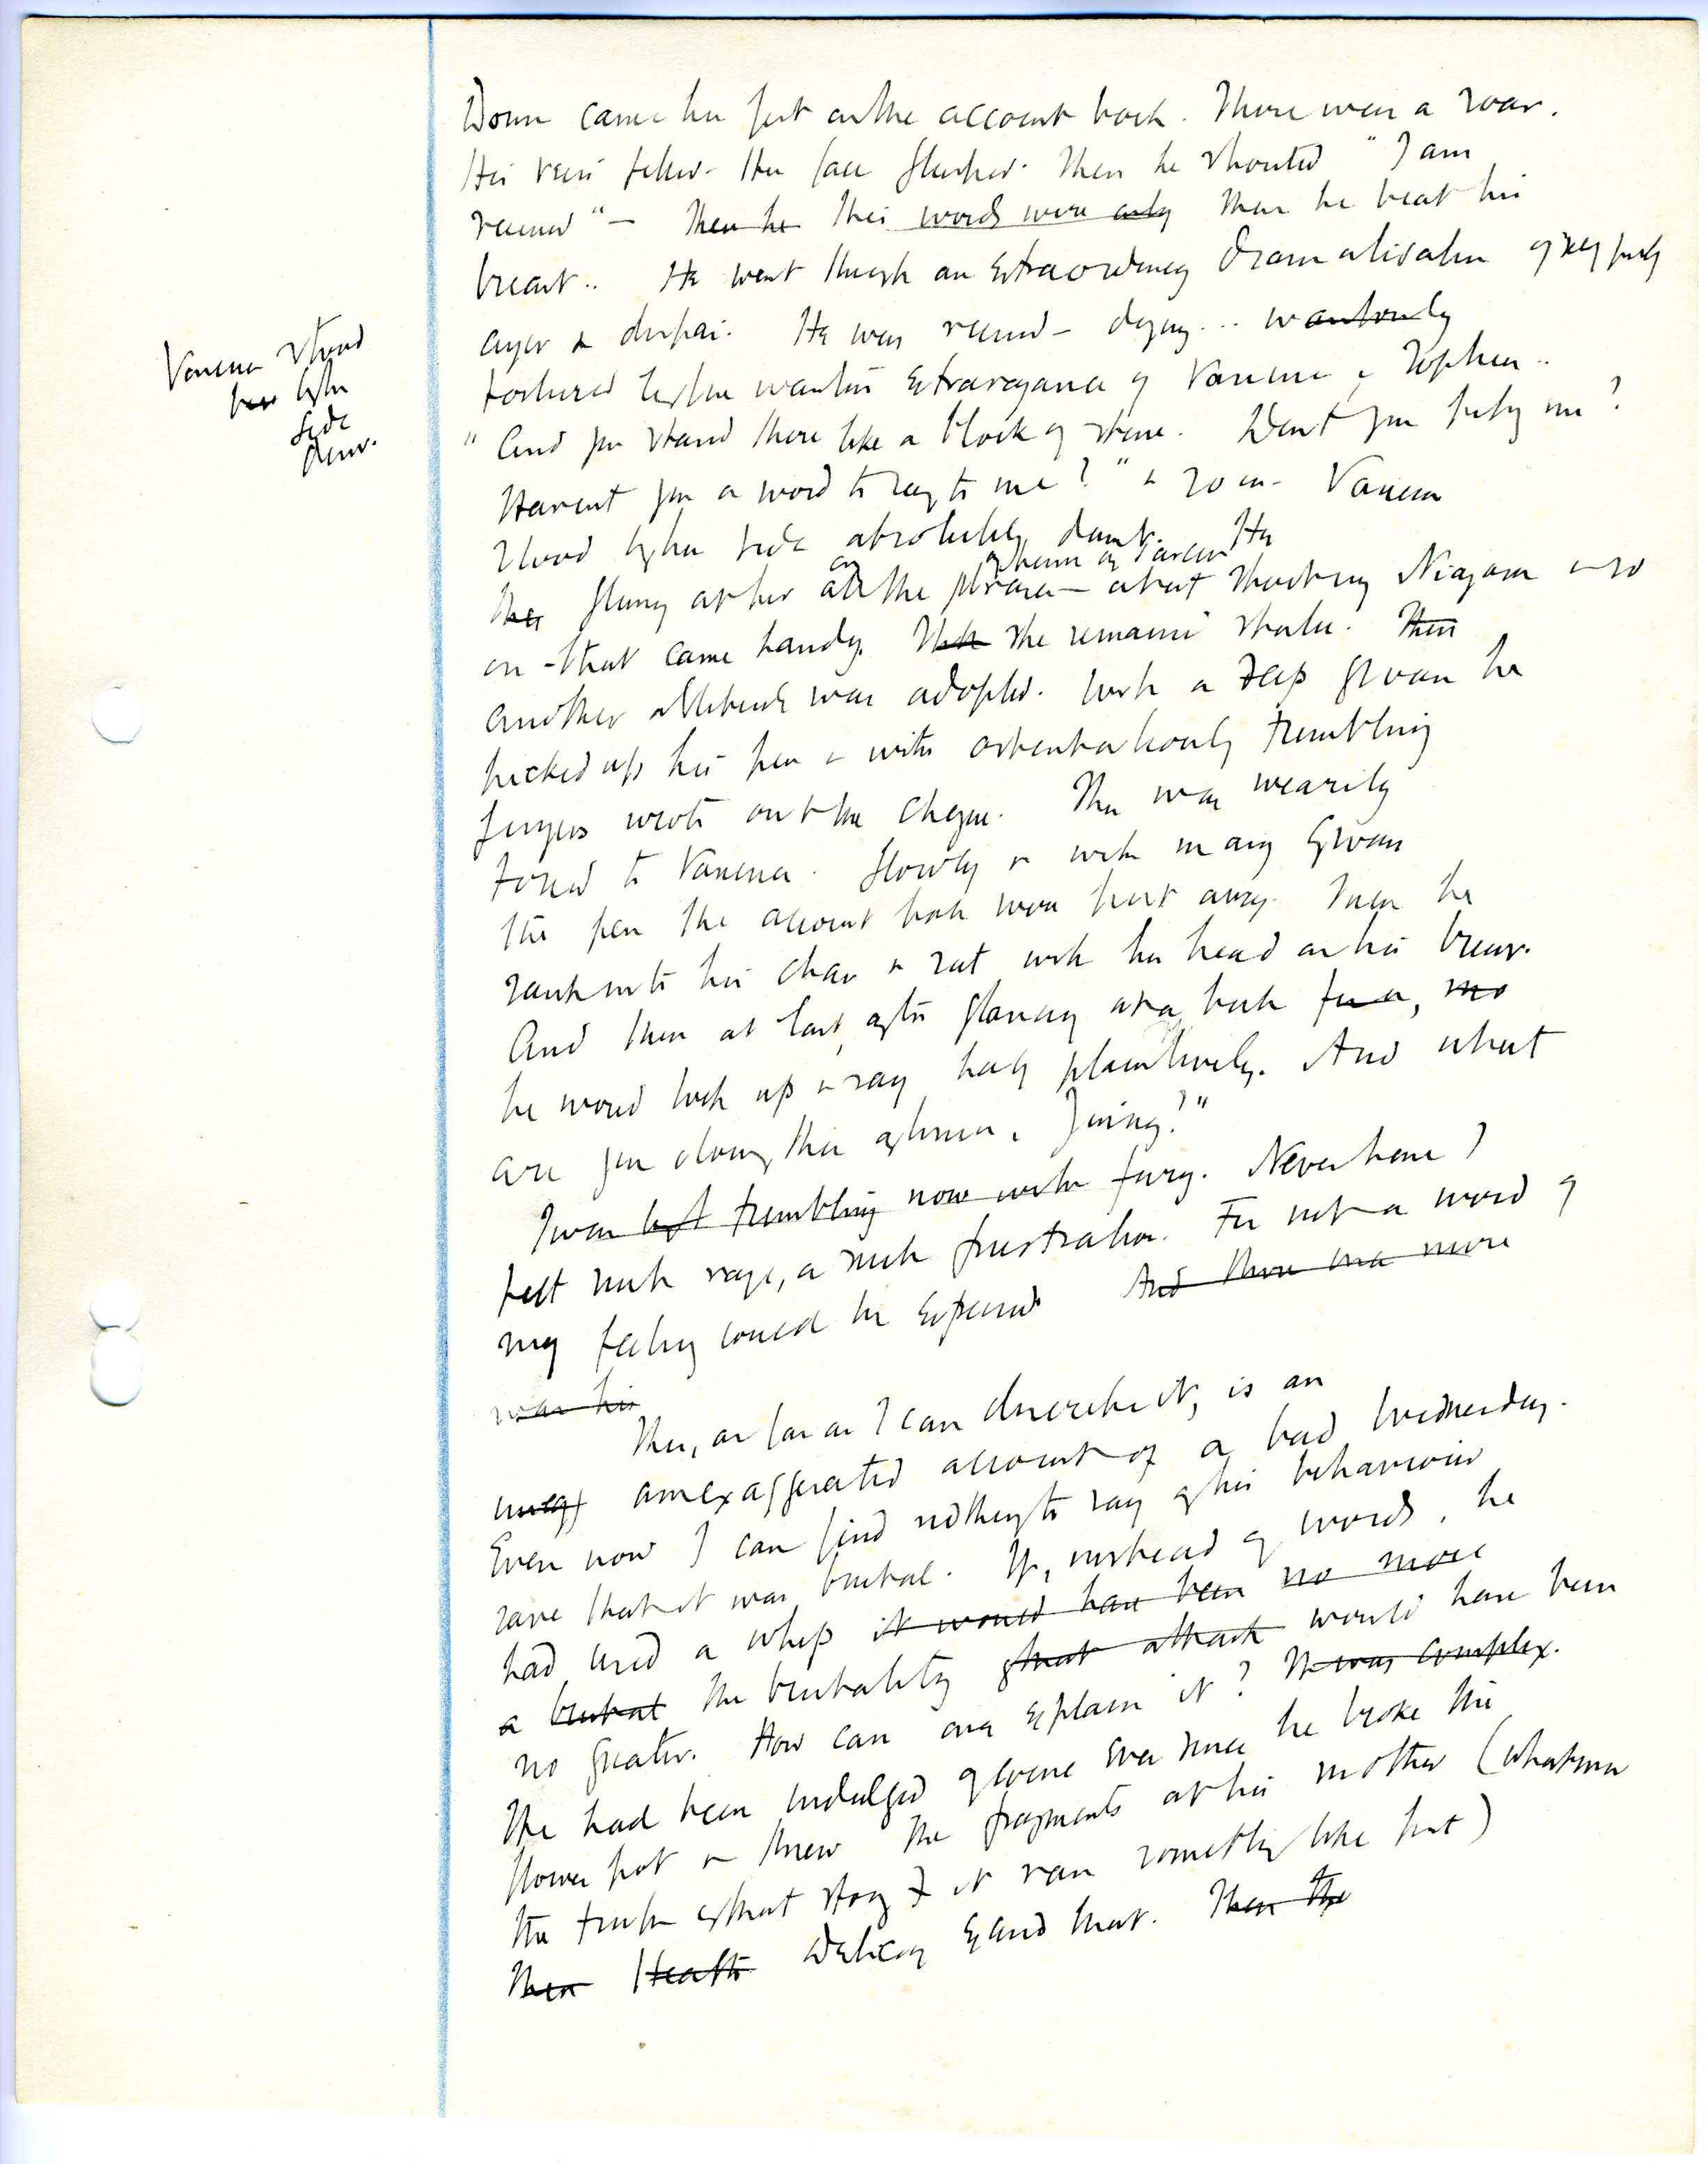 Vanessa stood
by his
side
dumb.
Down came his fist on the account book. There was a roar.
His veins filled. His face flushed. Then he shouted "I am
ruined" — Then he This words were only Then he beat his
breast.. He went through an extraordinary dramatisation of self pity
anger & despair. He was ruined — dying... wantonly
tortured by the wanton extravagance of Vanessa & Sophia..
" And you stand there like a block of stone. Don't you pity me?
Havent you a word to say to me?" & so on. Vanessa
stood by his side absolutely dumb. He
flung at her all the phrases — about shooting Niagara & so
on - that came handy. She remained statue. Then
another attitude was adopted. With a deep groan he
picked up his pen & with ostentatiously trembling
fingers wrote out the cheque. This was wearily
tossed to Vanessa. Slowly & with many groans
the pen the account book were put away. Then he
sank into his chair & sat with his head on his breast.
And then at last, after glancing at a book for a, mo
he would look up & say half plaintively. And what
are you doing this afternoon, Jinny?"
I was left trembling now with fury. Never have I
felt such rage, & such frustration. For not a word of
my feeling could be expressed And there was more
was his
This, as far as I can describe it, is an
unexaggerated account of a bad Wednesday.
Even now I can find nothing to say of his behaviour
save that it was brutal. If, instead of words, he
had used a whip it would have been no more
a brutal the brutality that attack would have been
no greater. How can one explain it? It was complex.
He had been indulged of course ever since he broke the
flower pot & threw the fragments at his mother (whatever
the truth of that story & it ran something like that)
Then Health Delicacy that. Then the